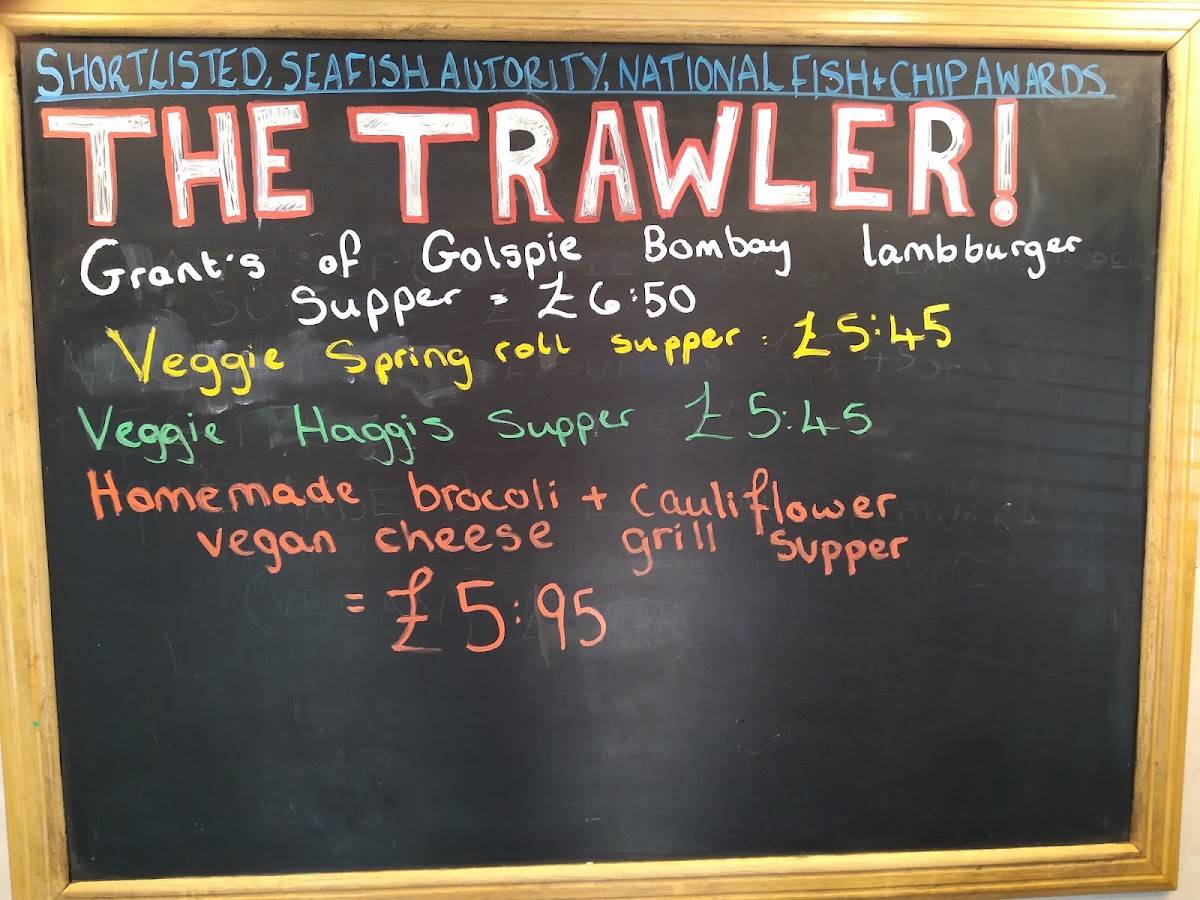 SHORTLISTED, SEAFISH AUTORITY, NATIONAL FISH + CHIP AWARDS
THE TRAWLER!
Grant's of Golspie Bombay lambburger
Supper = £6:50
Veggie Spring roll supper = £5:45
Veggie Haggis Supper £5:45
Homemade brocoli + cauliflower
vegan cheese grill supper
= £5:95